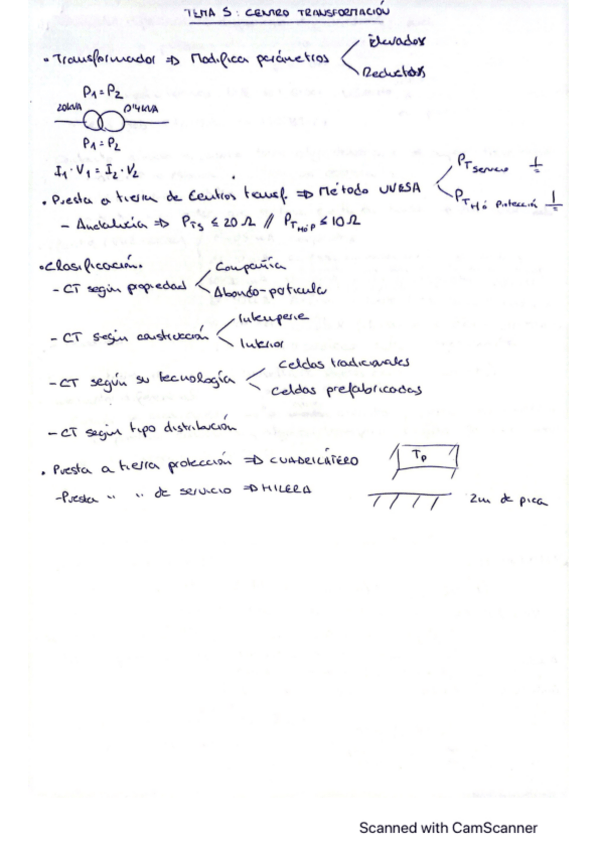 TEMA 5: CENTRO TRANSFORMACIÓN
· Transformador => Modifica parámetros
Elevador
Reductor
P1=P2
20kVA 0'4kVA
P1=P2
I1·V1=I2·V2
· Puesta a tierra de Centros transf. => Método UNESA
PT servicio
PT H ó Protección
- Andalucía => PTS ≤ 20Ω // PTHóP ≤ 10Ω
· Clasificación.
- CT según propiedad
Compañía
Abonado-particular
- CT según construcción
Intemperie
Interior
- CT según su tecnología
Celdas tradicionales
Celdas prefabricadas
- CT según tipo distribución
· Puesta a tierra protección => CUADRILÁTERO
Tp
- Puesta " " de servicio => HILERA
2m de pica
Scanned with CamScanner